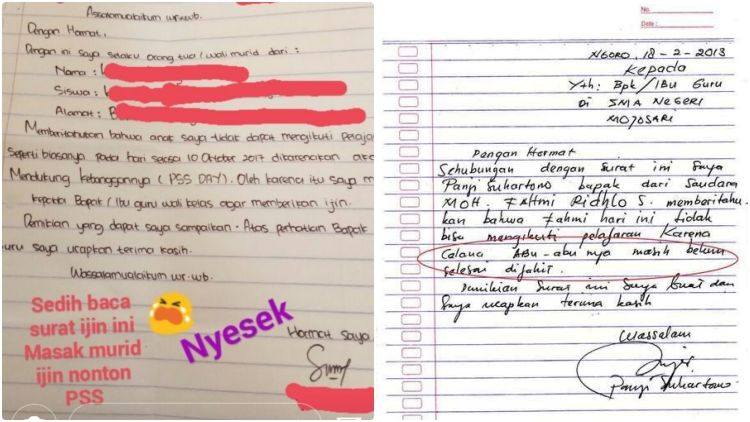 Assalamualaikum wr.wb.
Dengan Hormat,
Dengan ini saya selaku orang tua / wali murid dari :
Nama :
Siswa :
Alamat : B
Memberitahukan bahwa anak saya tidak dapat mengikuti Pelajar
Seperti biasanya Pada hari selasa 10 Oktober 2017 dikarenakan aka
Mendukung ketanggannya (PSS DAY). Oleh karena itu saya m
kepada Bapak / Ibu guru wali kelas agar memberikan ijin.
Demikian yang dapat saya sampaikan. Atas perhatian Bapak
uru saya ucapkan terima kasih.
Wassalamualaikum wr.wb.
Hormat saya
Sedih baca
surat ijin ini
Masak murid
ijin nonton
PSS
Nyesek
No.
Date :
NGORO, 18-2-2013
Kepada
Yth: Bpk/IBu Guru
Di SMA NEGERI
MOJOSARI
Dengan Hormat
Sehubungan dengan surat ini Saya
Panji Suhartono bapak dari Saudara
MOH. FAHMI RIDHLO S. memberitahu
kan bahwa Fahmi hari ini tidak
bisa mengikuti pelajaran Karena
Celana ABU-abu nya masih belum
selesai dijahit.
Demikian Surat ini Saya buat dan
Saya ucapkan terima kasih
Wassalam
Panji Suhartono